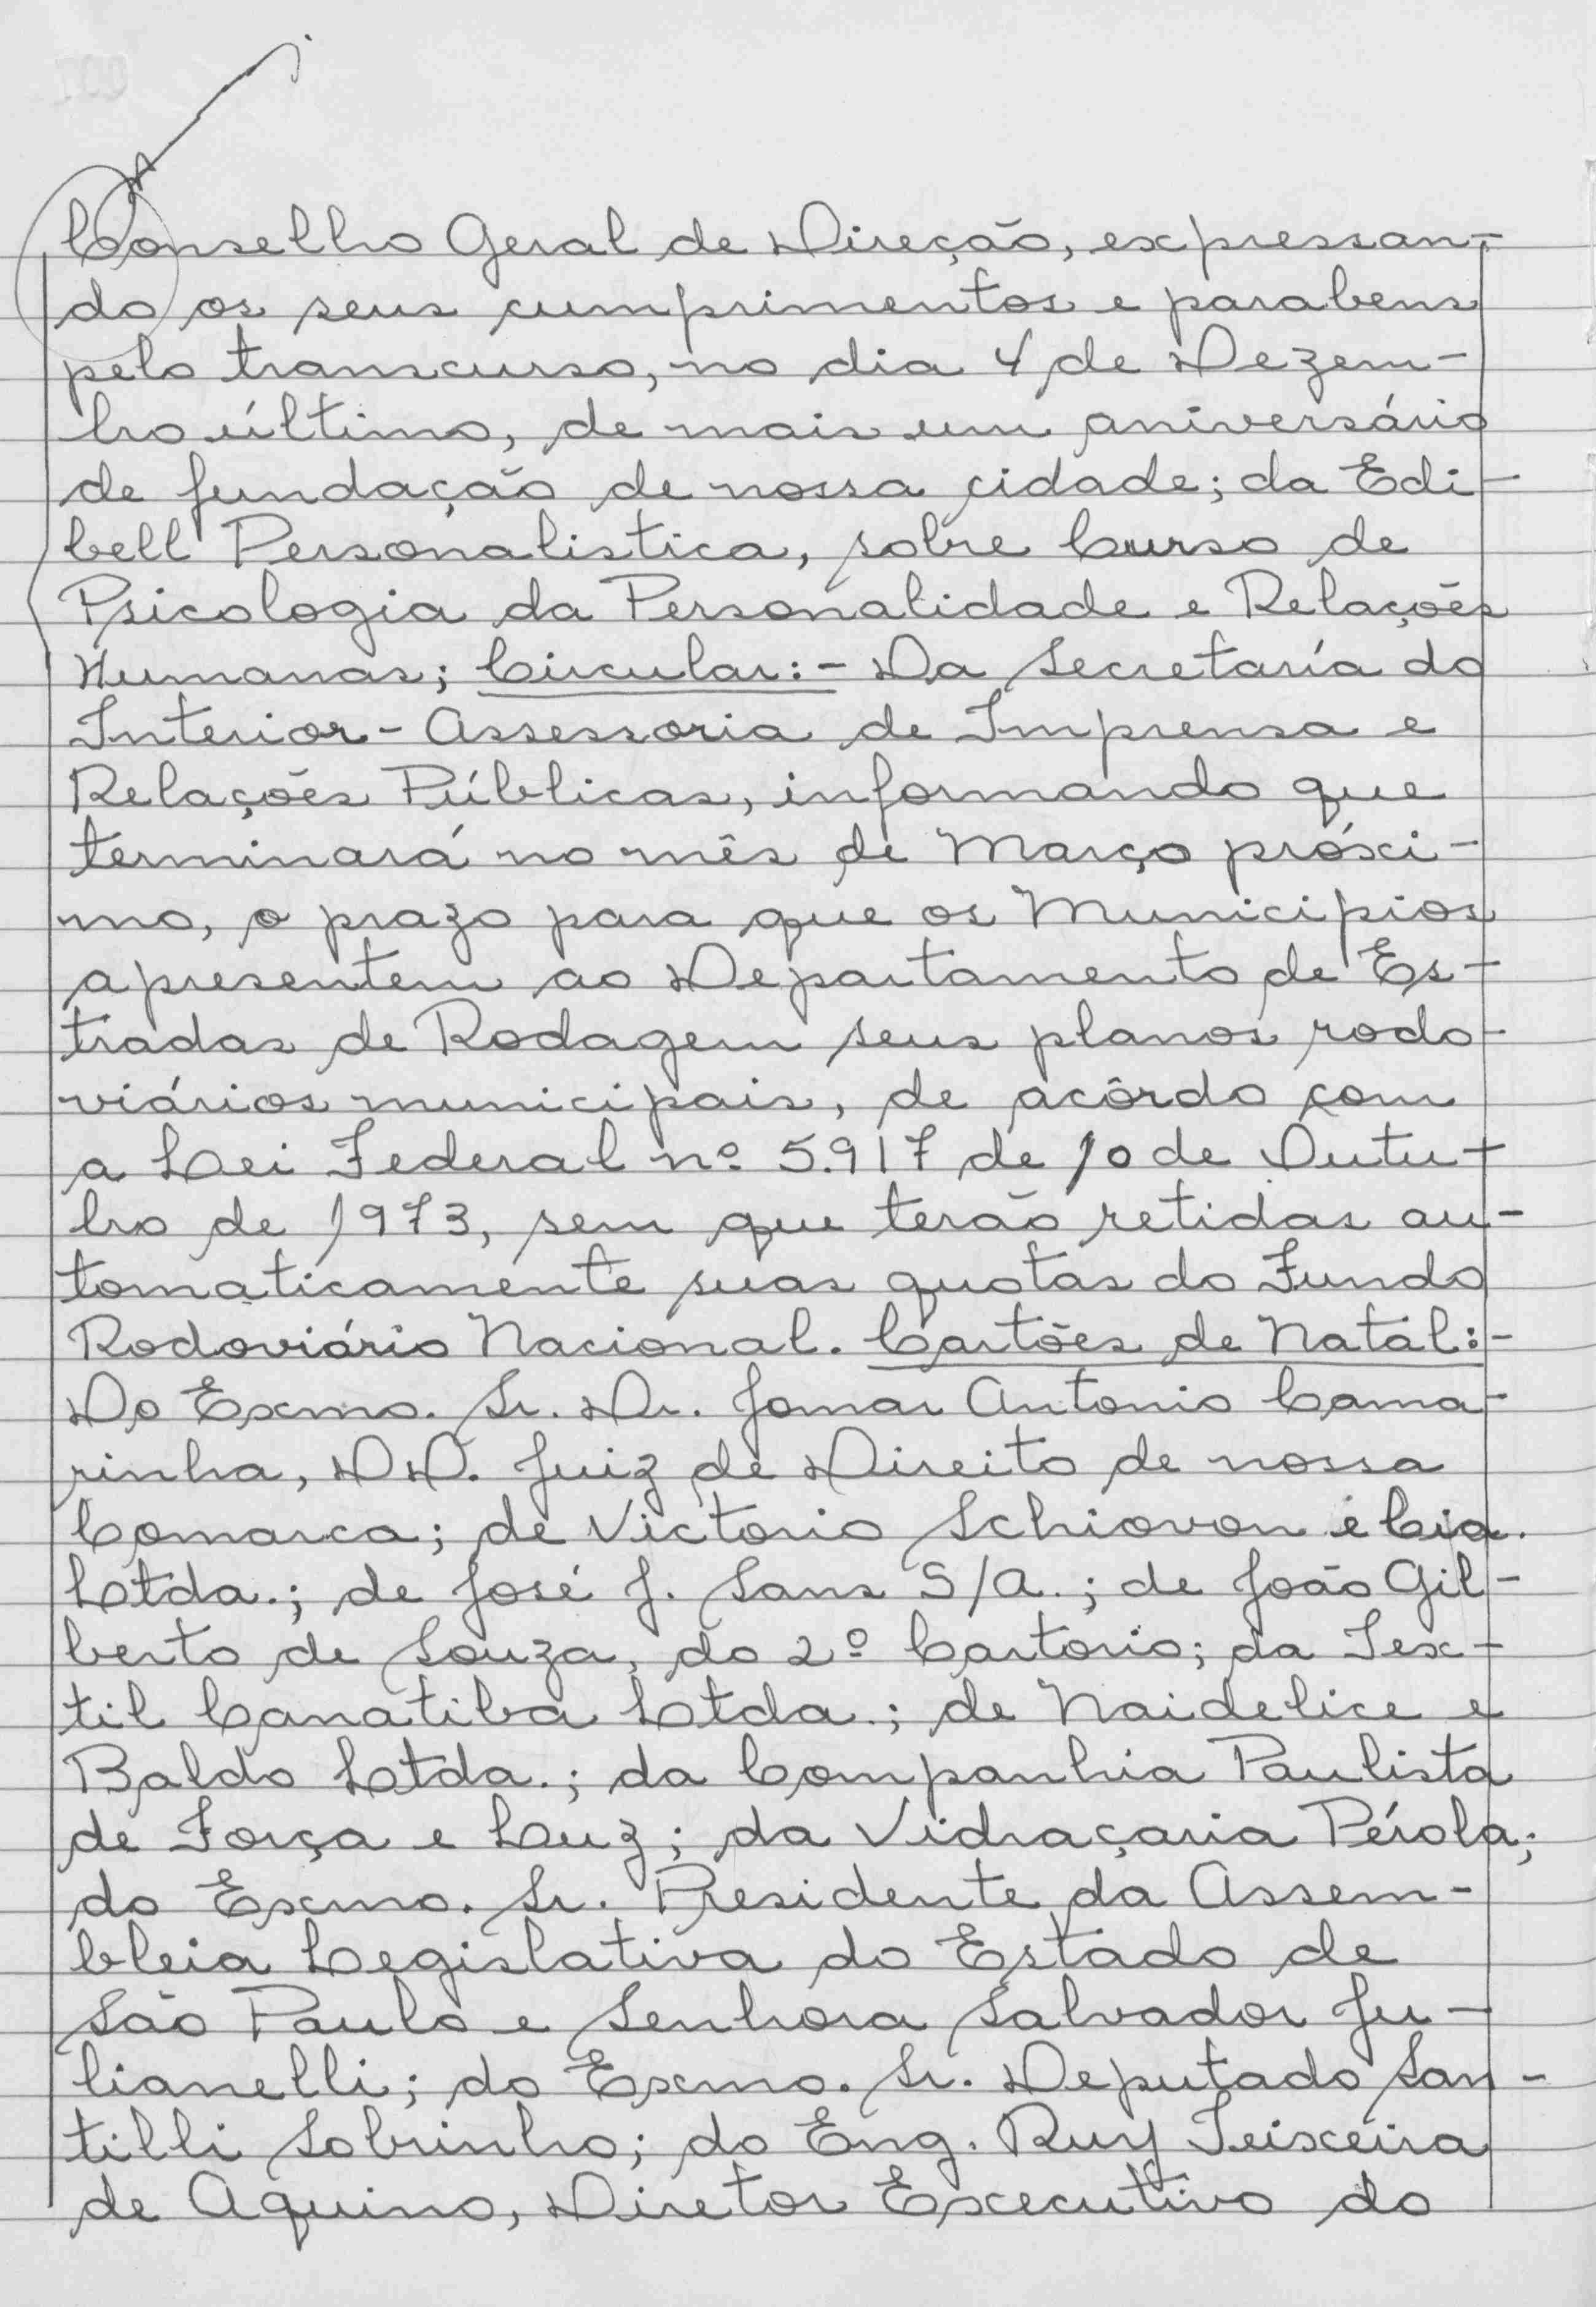 Conselho Geral de Direção, expressan-
do os seus cumprimentos e parabens
pelo transcurso, no dia 4 de Dezem-
bro último, de mais um aniversário
de fundação de nossa cidade; da Edi-
bell Personalistica, sobre Curso de
Psicologia da Personalidade e Relações
Humanas; Circular:- Da Secretaría do
Interior - Assessoria de Imprensa e
Relações Públicas, informando que
terminará no mês de Março próxi-
mo, o prazo para que os Municipios
apresentem ao Departamento de Es-
tradas de Rodagem seus planos rodo-
viários municipais, de acôrdo com
a Lei Federal nº 5.917 de 10 de Outu-
bro de 1973, sem que terão retidas au-
tomaticamente suas quotas do Fundo
Rodoviário Nacional. Cartões de Natal:-
Do Exmo. Sr. Dr. Jomar Antonio Cama-
rinha, DD. Juiz de Direito de nossa
Comarca; de Victorio Schiovon e Cia.
Ltda.; de José J. Sans S/A.; de João Gil-
berto de Souza, do 2º Cartorio; da Tex-
til Canatiba Ltda.; de Naidelice e
Baldo Ltda.; da Companhia Paulista
de Força e Luz; da Vidraçaria Pérola;
do Exmo. Sr. Presidente da Assem-
bleia Legislativa do Estado de
São Paulo e Senhora Salvador Ju-
lianelli; do Exmo. Sr. Deputado San-
tilli Sobrinho; do Eng. Ruy Teixeira
de Aquino, Diretor Excecutivo do